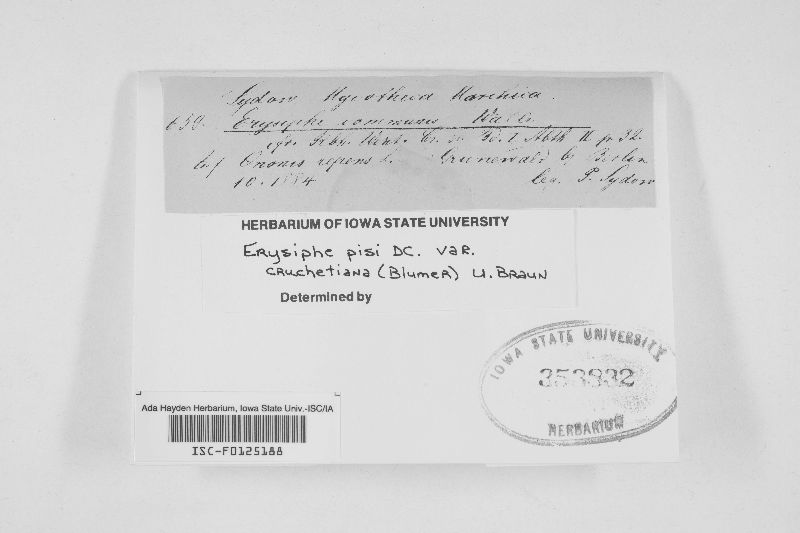 Sydow Mycotheca Marchica.
650. Erysiphe communis Wallr.
p. 32.
Auf Ononis repens L. Grunewald b. Berlin
10. 1884 leg. P. Sydow
HERBARIUM OF IOWA STATE UNIVERSITY
Erysiphe pisi DC. var.
cruchetiana (Blumer) U. Braun
Determined by
IOWA STATE UNIVERSITY
353932
HERBARIUM
Ada Hayden Herbarium, Iowa State Univ.-ISC/IA
ISC-F0125188